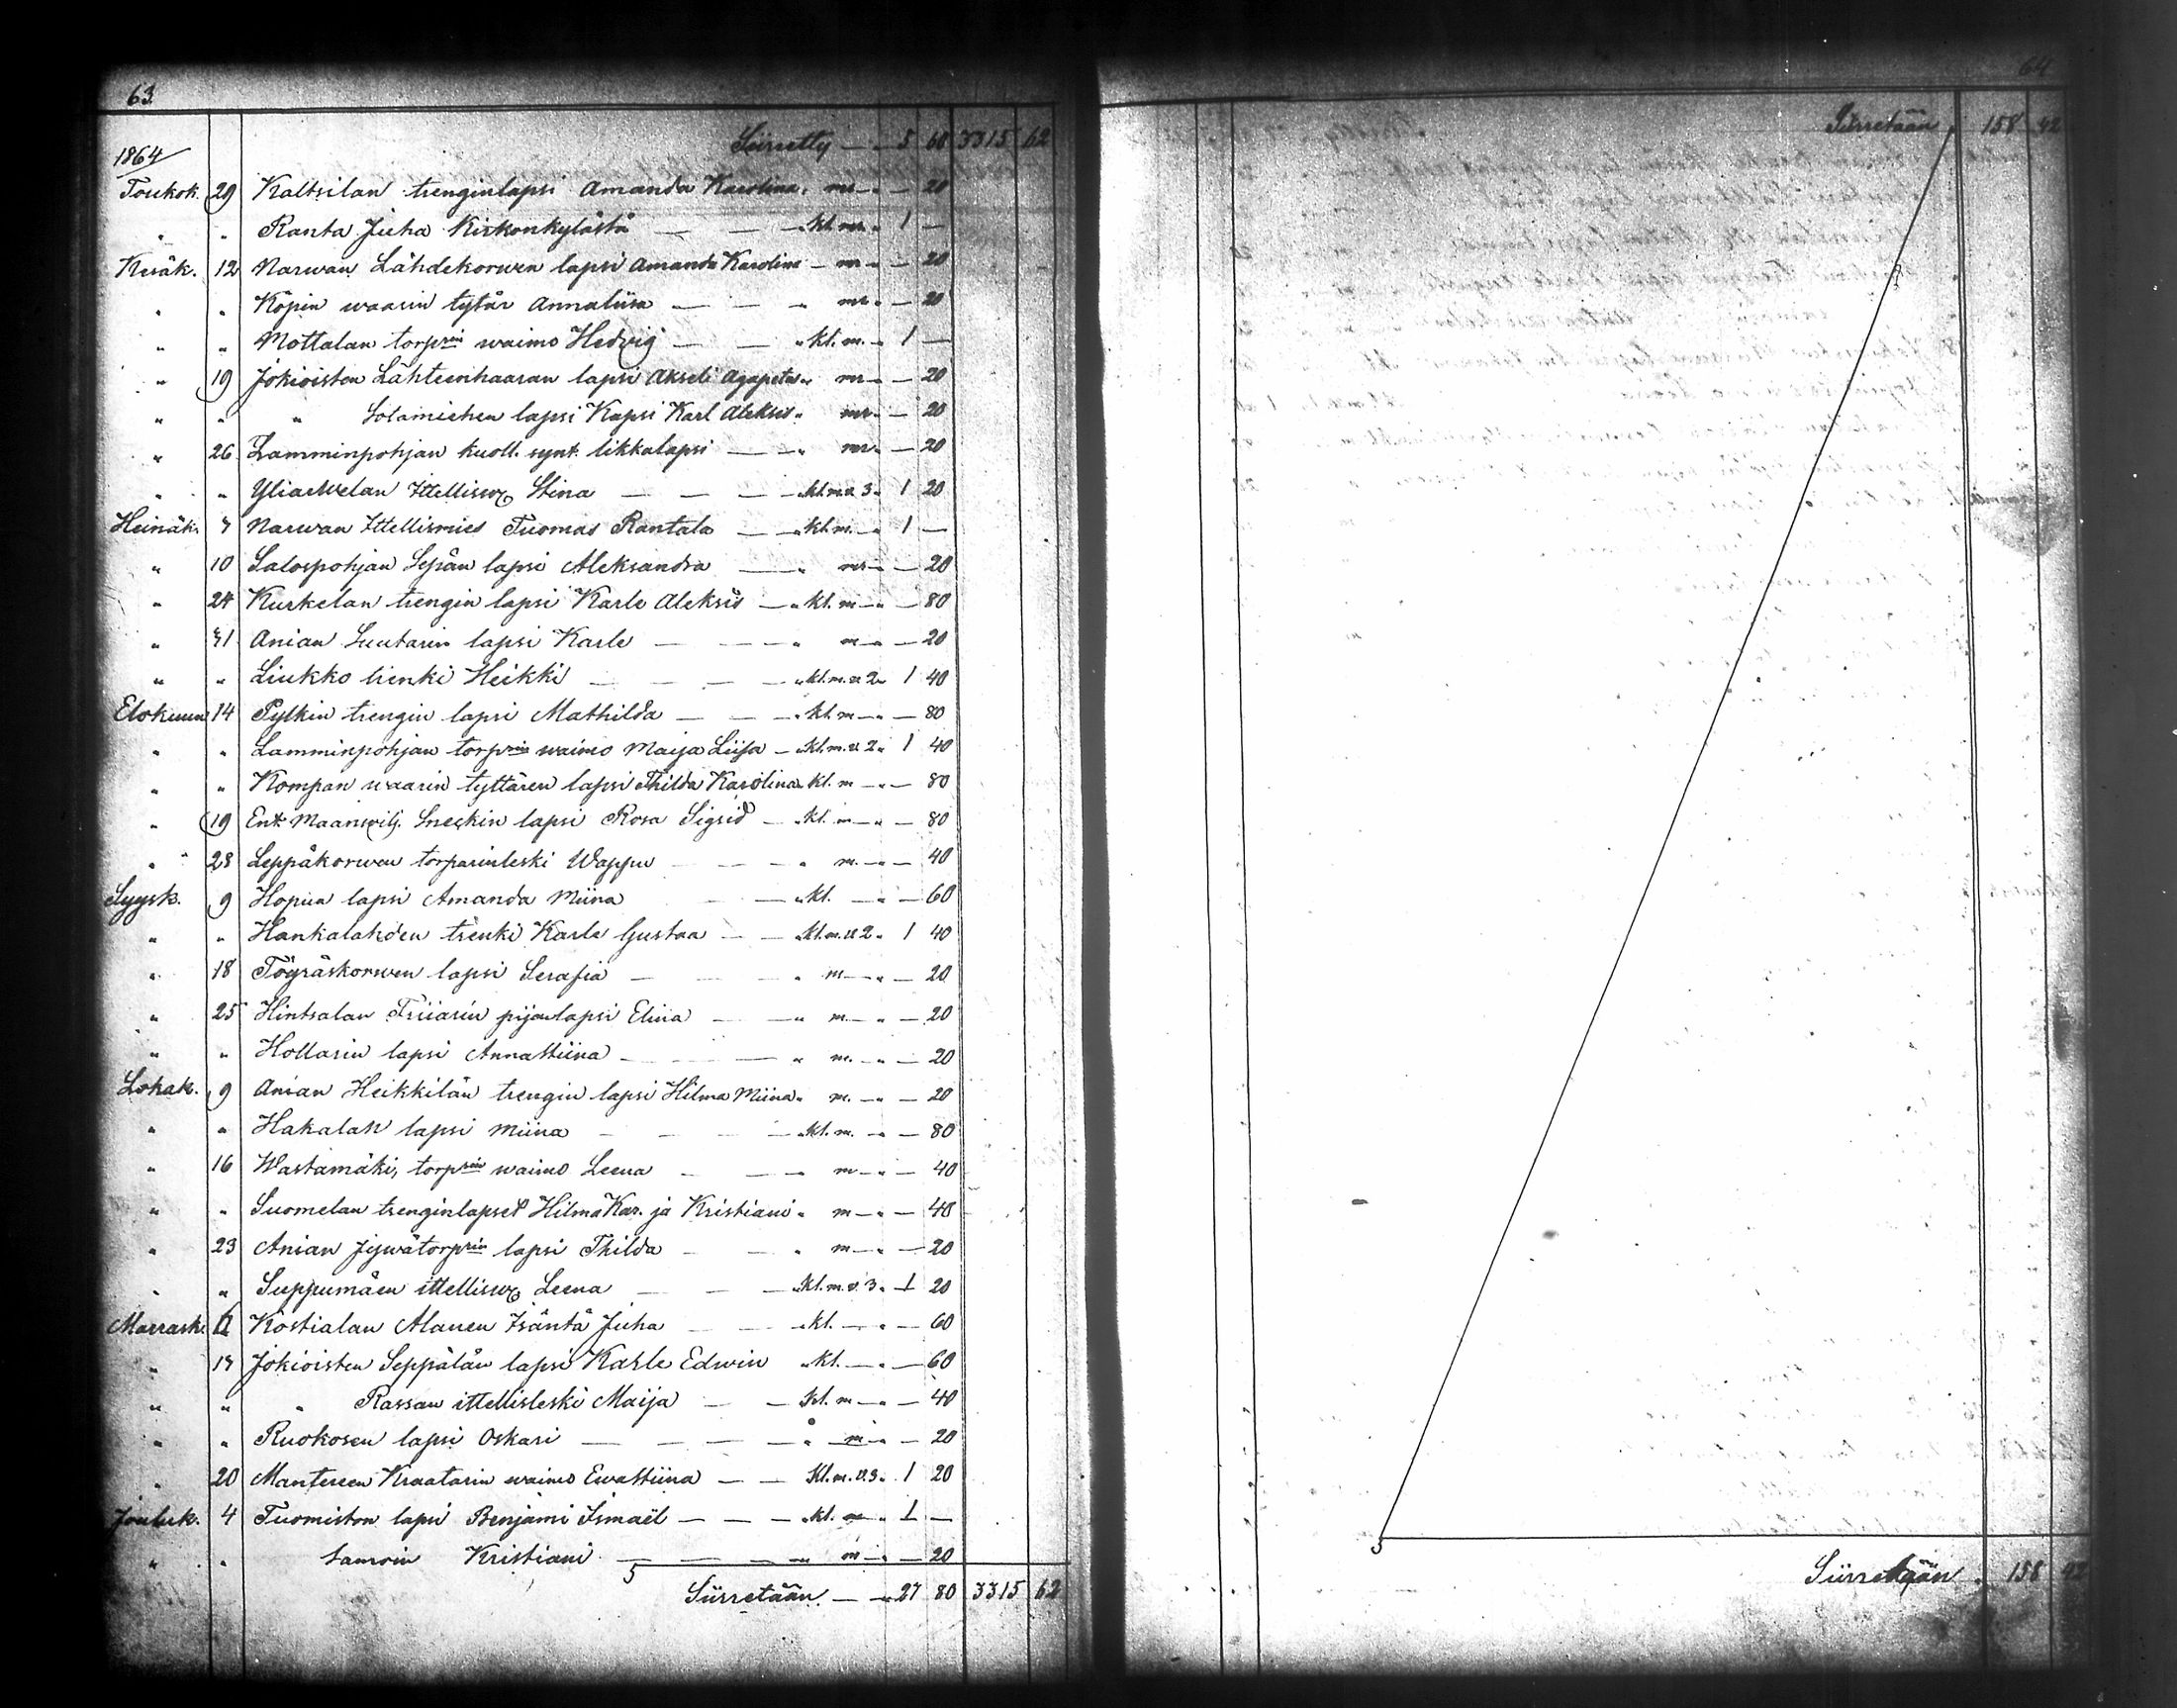 63
Siirretty — „ 5 60 3315 62
1864
Toukok. 29 Kaltsilan trenginlapsi Amanda Karolina „ mr — „ — 20
„ „ Ranta Juha Kirkonkylästä — — „ kl. mr. „ 1 —
Kesäk. 12 Narwan Lähdekorwen lapsi Amanda Karolina — mr — „ — 20
„ „ Köpin waarin tytär Annaliisa — — „ mr. „ — 20
„ „ Mottalan torprin waimo Hedvig — — „ kl. m. „ 1 —
„ 19 Jokioisten Lähteenhaaran lapsi Akseli Agapetus „ mr — „ — 20
„ „ „ Solamiehen lapsi Kapsi Karl Aleksis „ mr. „ — 20
„ 26 Lamminpohjan kuoll. synt. likkalapsi — „ mr. „ — 20
„ „ Yliarwelan Ittellisw Stina — — — „ kl. m. v. 3 „ 1 20
Heinäk. 7 Narwan Ittellismies Tuomas Rantala — „ kl. m. — „ 1 —
„ 10 Salospohjan Sepän lapsi Aleksandra — „ mr — „ — 20
„ 24 Kurkelan trengin lapsi Karle Aleksis — „ kl. m — „ — 80
„ 31 Anian Suutarin lapsi Karle — — — „ m — „ — 20
„ „ Liukko trenki Heikki — — — „ kl. m. v. 2 „ 1 40
Elokuun 14 Pylkin trengin lapsi Mathilda — — — „ kl. m — „ — 80
„ „ Lamminpohjan torprin waimo Maija Liisa — „ kl. m. v. 2 „ 1 40
„ „ Kompan waarin tyttären lapsi Thilda Karolina „ kl. m — „ — 80
„ 19 Ent. Maanwilj. Sneckin lapsi Rosa Sigrid — „ kl. m — „ — 80
„ 28 Leppäkorwen torparinleski Wappu — — „ m. — „ — 40
Syysk. 9 Hopun lapsi Amanda Miina — „ kl. — „ — 60
„ „ Hankalahden trenki Karle Gustaa — — „ kl. m. v. 2 „ 1 40
„ 18 Töyräskorwen lapsi Serafia — — „ m — „ — 20
„ 25 Hintsalan Friiarin pijanlapsi Elina — — „ m. — „ — 20
„ „ Hollarin lapsi Annastiina — — „ m. — „ — 20
Lokak. 9 Anian Heikkilän trengin lapsi Hilma Miina „ m. — „ — 20
„ „ Hakalan lapsi Miina — — — „ kl. m. — „ — 80
„ 16 Wastamäki, torprin waimo Leena — — „ m — „ — 40
„ „ Suomelan trenginlapset Hilma Kar. ja Kristiani „ m — „ — 40
„ 23 Anian Jywätorprin lapsi Thilda — — „ m — „ — 20
„ „ Suppumäen ittellisw Leena — — „ kl. m. v. 3 „ 1 20
Marrask. 6 Kostialan Alanen Isäntä Juha — — „ kl. — „ — 60
„ 13 Jokioisten Seppälän lapsi Karle Edwin „ kl. — „ — 60
„ „ „ Rassan ittellisleski Maija — — kl. m — „ — 40
„ „ Ruokosen lapsi Oskari — — — „ m — „ — 20
„ 20 Mantereen Kraatarin waimo Ewastiina — — kl. m. v. 3 „ 1 20
Jouluk. 4 Tuomiston lapsi Benjami Ismaël — — — „ kl. m „ 1 —
„ „ Samoin Kristiani — — — „ m — „ — 20
Siirretään — „ 27 80 3315 62
64
Siirretään „ 158 42
Siirretään „ 158 42